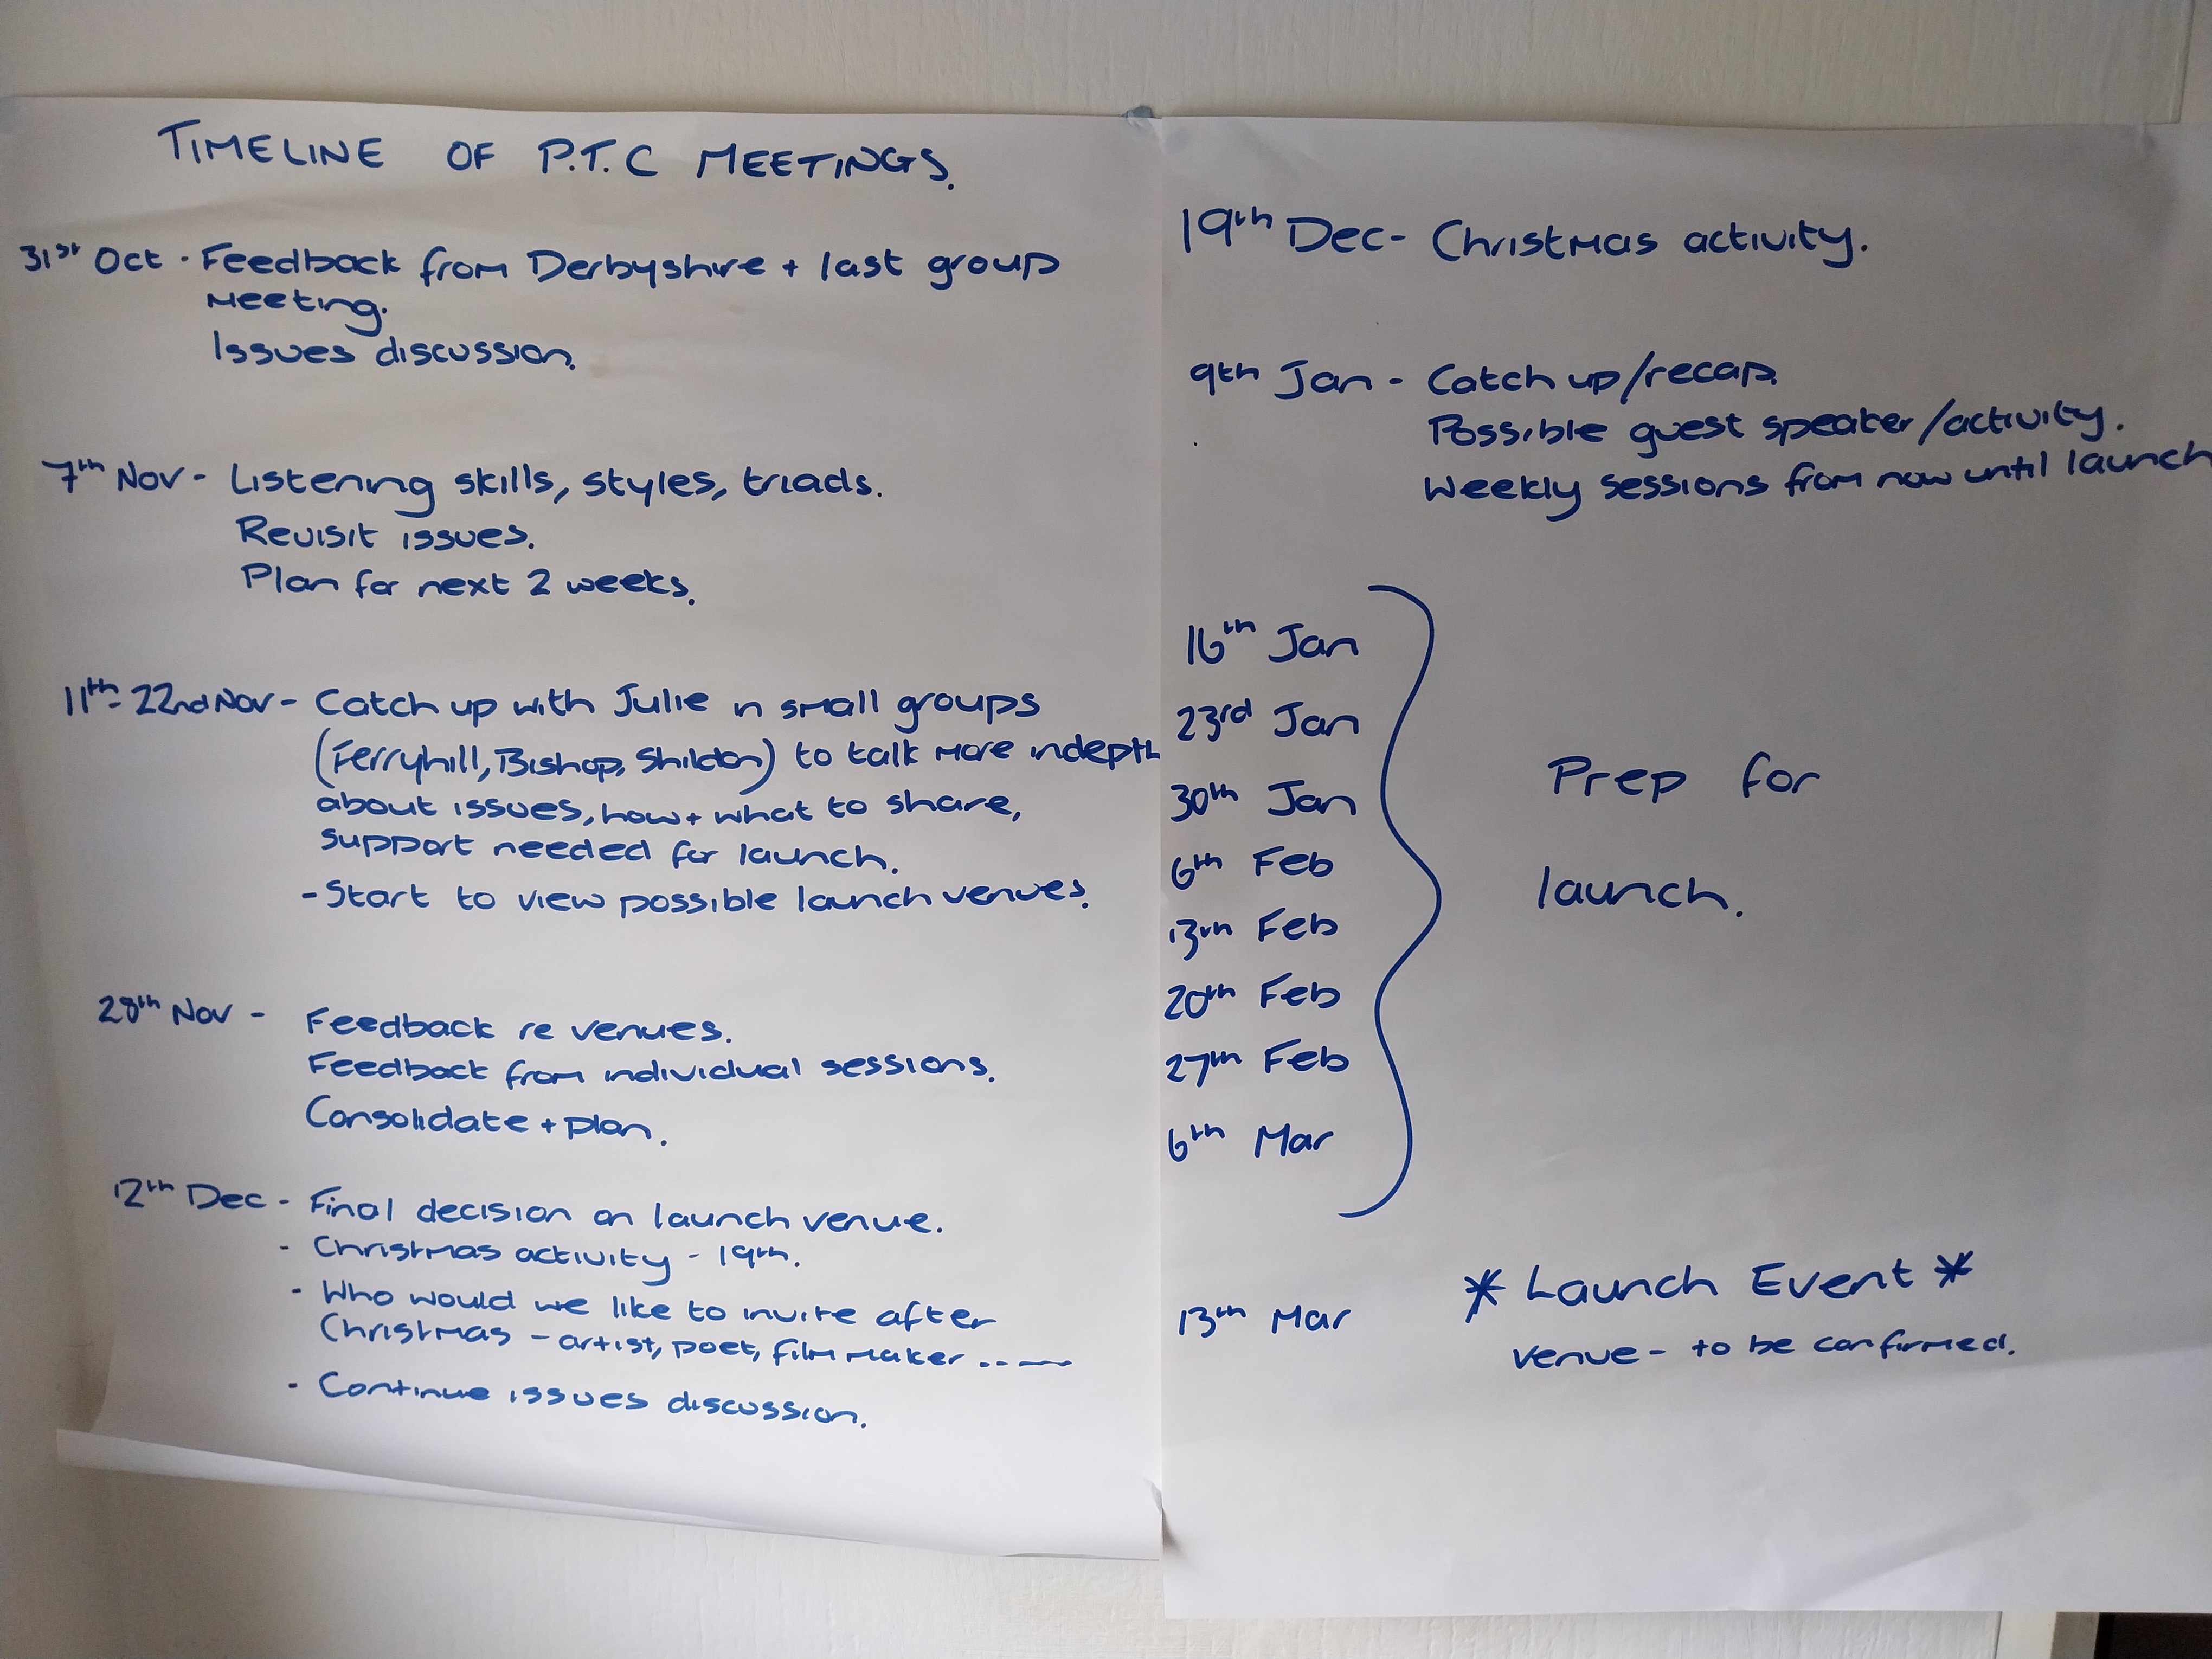 TIMELINE OF P.T.C MEETINGS.
31st Oct · Feedback from Derbyshire + last group
Meeting.
Issues discussion.
7th Nov - Listening skills, styles, triads.
Revisit issues.
Plan for next 2 weeks.
11th - 22nd Nov - Catch up with Julie in small groups
(Ferryhill, Bishop, Shildon) to talk more indepth
about issues, how + what to share,
support needed for launch.
- Start to view possible launch venues.
28th Nov - Feedback re venues.
Feedback from individual sessions.
Consolidate + plan.
12th Dec - Final decision on launch venue.
- Christmas activity - 19th.
- Who would we like to invite after
Christmas - artist, poet, film maker .....
- Continue issues discussion.
19th Dec - Christmas activity.
9th Jan - Catch up/recap.
Possible guest speaker/activity.
Weekly sessions from now until launch
16th Jan
23rd Jan
30th Jan
6th Feb
13th Feb
20th Feb
27th Feb
6th Mar
Prep for
launch.
13th Mar * Launch Event *
Venue - to be confirmed.